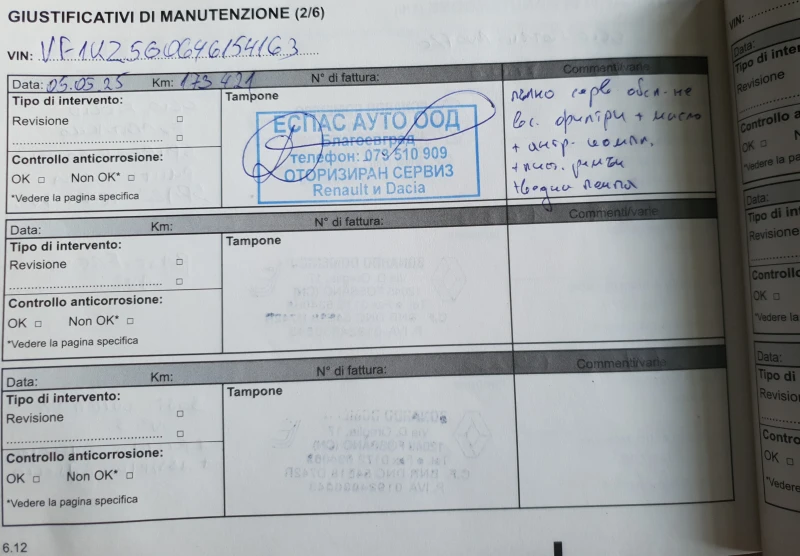 GIUSTIFICATIVI DI MANUTENZIONE (2/6)
VIN: VF1KZ5G0646154163
Data: 05.05.25 Km: 173 421 N° di fattura: Commenti/varie
Tipo di intervento:
Revisione
Controllo anticorrosione:
OK □ Non OK* □
*Vedere la pagina specifica
Tampone
ЕСПАС АУТО ООД
Благоевград
телефон: 079 510 909
ОТОРИЗИРАН СЕРВИЗ
Renault и Dacia
пълно серв обсл-не
филтри + масло
+ антр. компл.
+ водна помпа
Data: Km: N° di fattura: Commenti/varie
Tipo di intervento:
Revisione
Controllo anticorrosione:
OK □ Non OK* □
*Vedere la pagina specifica
Tampone
Data: Km: N° di fattura: Commenti/varie
Tipo di intervento:
Revisione
Controllo anticorrosione:
OK □ Non OK* □
*Vedere la pagina specifica
Tampone
6.12
VIN:
Data:
Tipo di inter
Revisione
OK □
*Vedere la pa
Data:
Tipo di int
Revisione
Controllo
OK □
*Vedere la
Data:
Tipo di
Revision
Contro
OK □
*Vedere